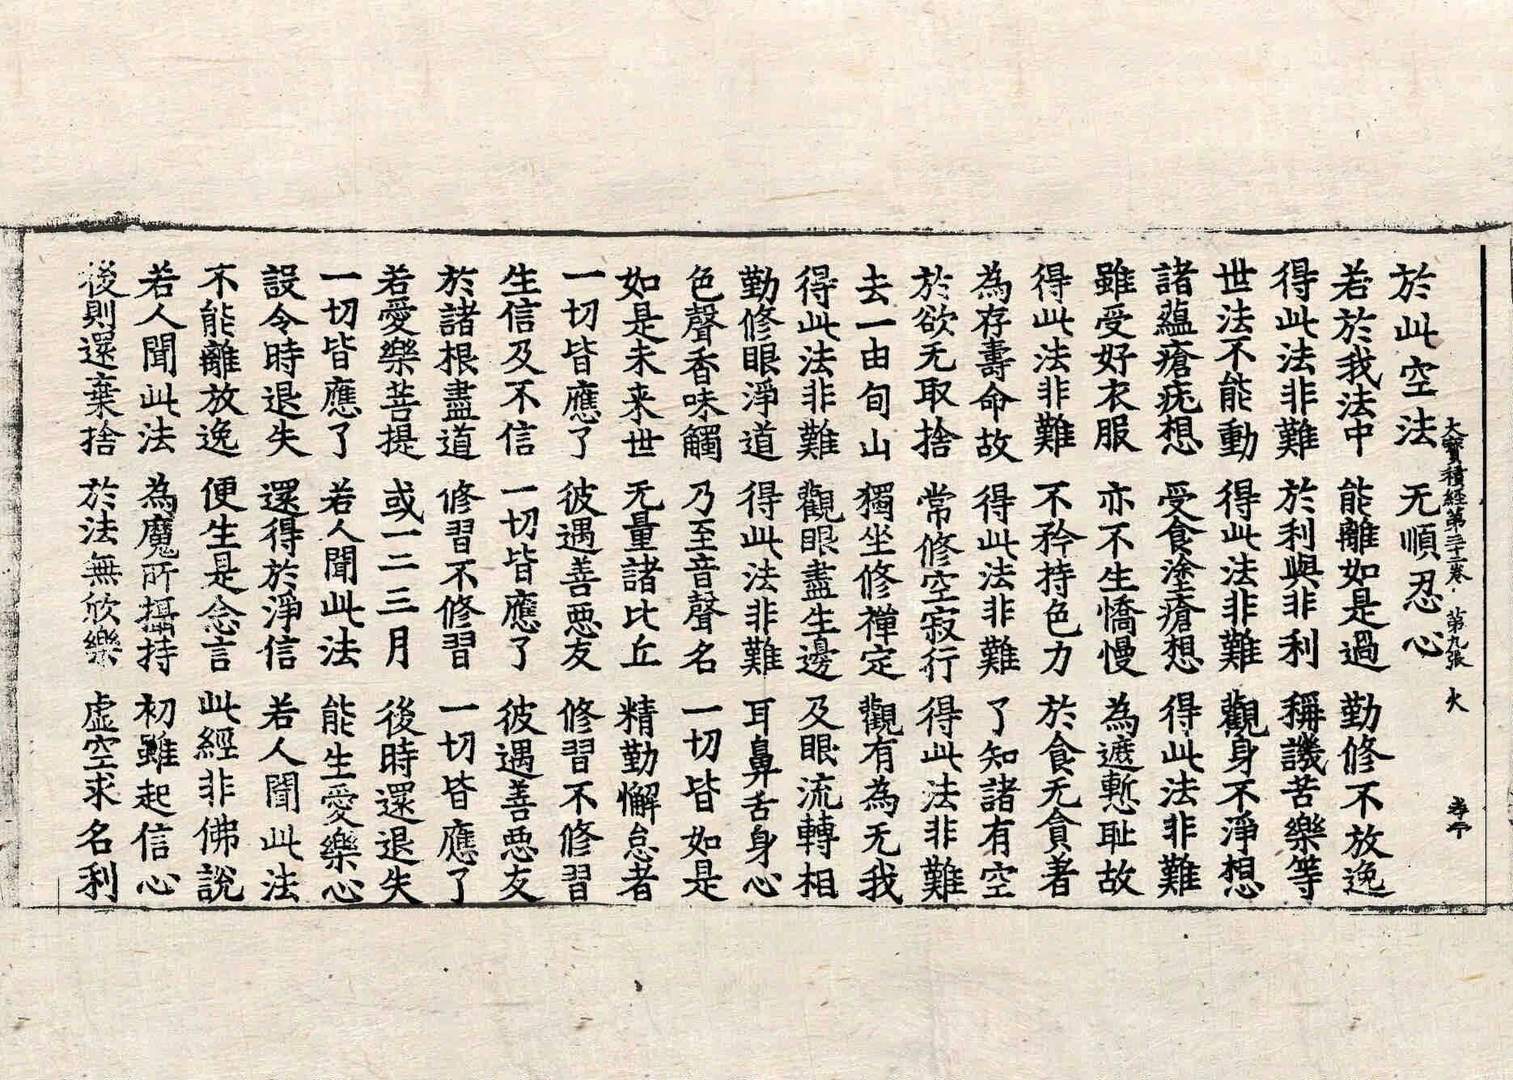 大寶積經第三十二卷 第九張 火
於此空法 无順忍心
若於我法中 能離如是過 勤修不放逸
得此法非難 於利與非利 稱譏苦樂等
世法不能動 得此法非難 觀身不淨想
諸蘊瘡疣想 受食塗瘡想 得此法非難
雖受好衣服 亦不生憍慢 為遮慙耻故
得此法非難 不矜持色力 於食无貪著
為存壽命故 得此法非難 了知諸有空
於欲无取捨 常修空寂行 得此法非難
去一由旬山 獨坐修禪定 觀有為无我
得此法非難 觀眼盡生邊 及眼流轉相
勤修眼淨道 得此法非難 耳鼻舌身心
色聲香味觸 乃至音聲名 一切皆如是
如是未来世 无量諸比丘 精勤懈怠者
一切皆應了 彼遇善惡友 修習不修習
生信及不信 一切皆應了 彼遇善惡友
於諸根盡道 修習不修習 一切皆應了
若愛樂菩提 或一二三月 後時還退失
一切皆應了 若人聞此法 能生愛樂心
設令時退失 還得於淨信 若人聞此法
不能離放逸 便生是念言 此經非佛說
若人聞此法 為魔所攝持 初雖起信心
後則還棄捨 於法無欣樂 虛空求名利